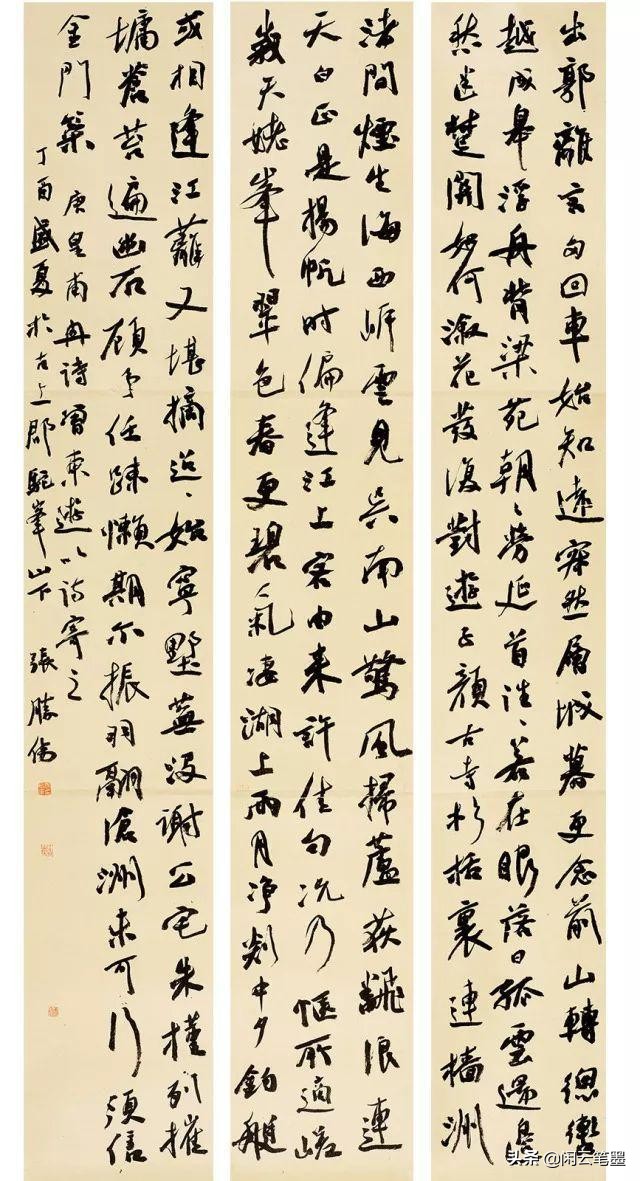 出郭離言多回車始知遠寂然層城暮更念前山轉總轡
越成皋浮舟背梁苑朝〻勞延首往〻若在眼落日孤雲還邊
愁迷楚關如何淑花發復對遊子顏古寺杉栝裏連檣洲
渚間煙生海西岸雲見吳南山驚風掃蘆荻翻浪連
天白正是揚帆時偏逢江上客由来許佳句況乃愜所適嵯
峩天姥峯翠色春更碧氣淒湖上雨月净剡中夕釣艇
或相逢江蘺又堪摘迢〻始寧墅蕪沒謝公宅朱槿列摧
墉蒼苔遍幽石顧予任疎懶期尔振羽翮滄洲未可行須售
金門策 唐皇甫冉詩曾東遊以詩寄之
丁酉盛夏於古上郡駝峯山下張勝偉
头条 @闲云笔墨